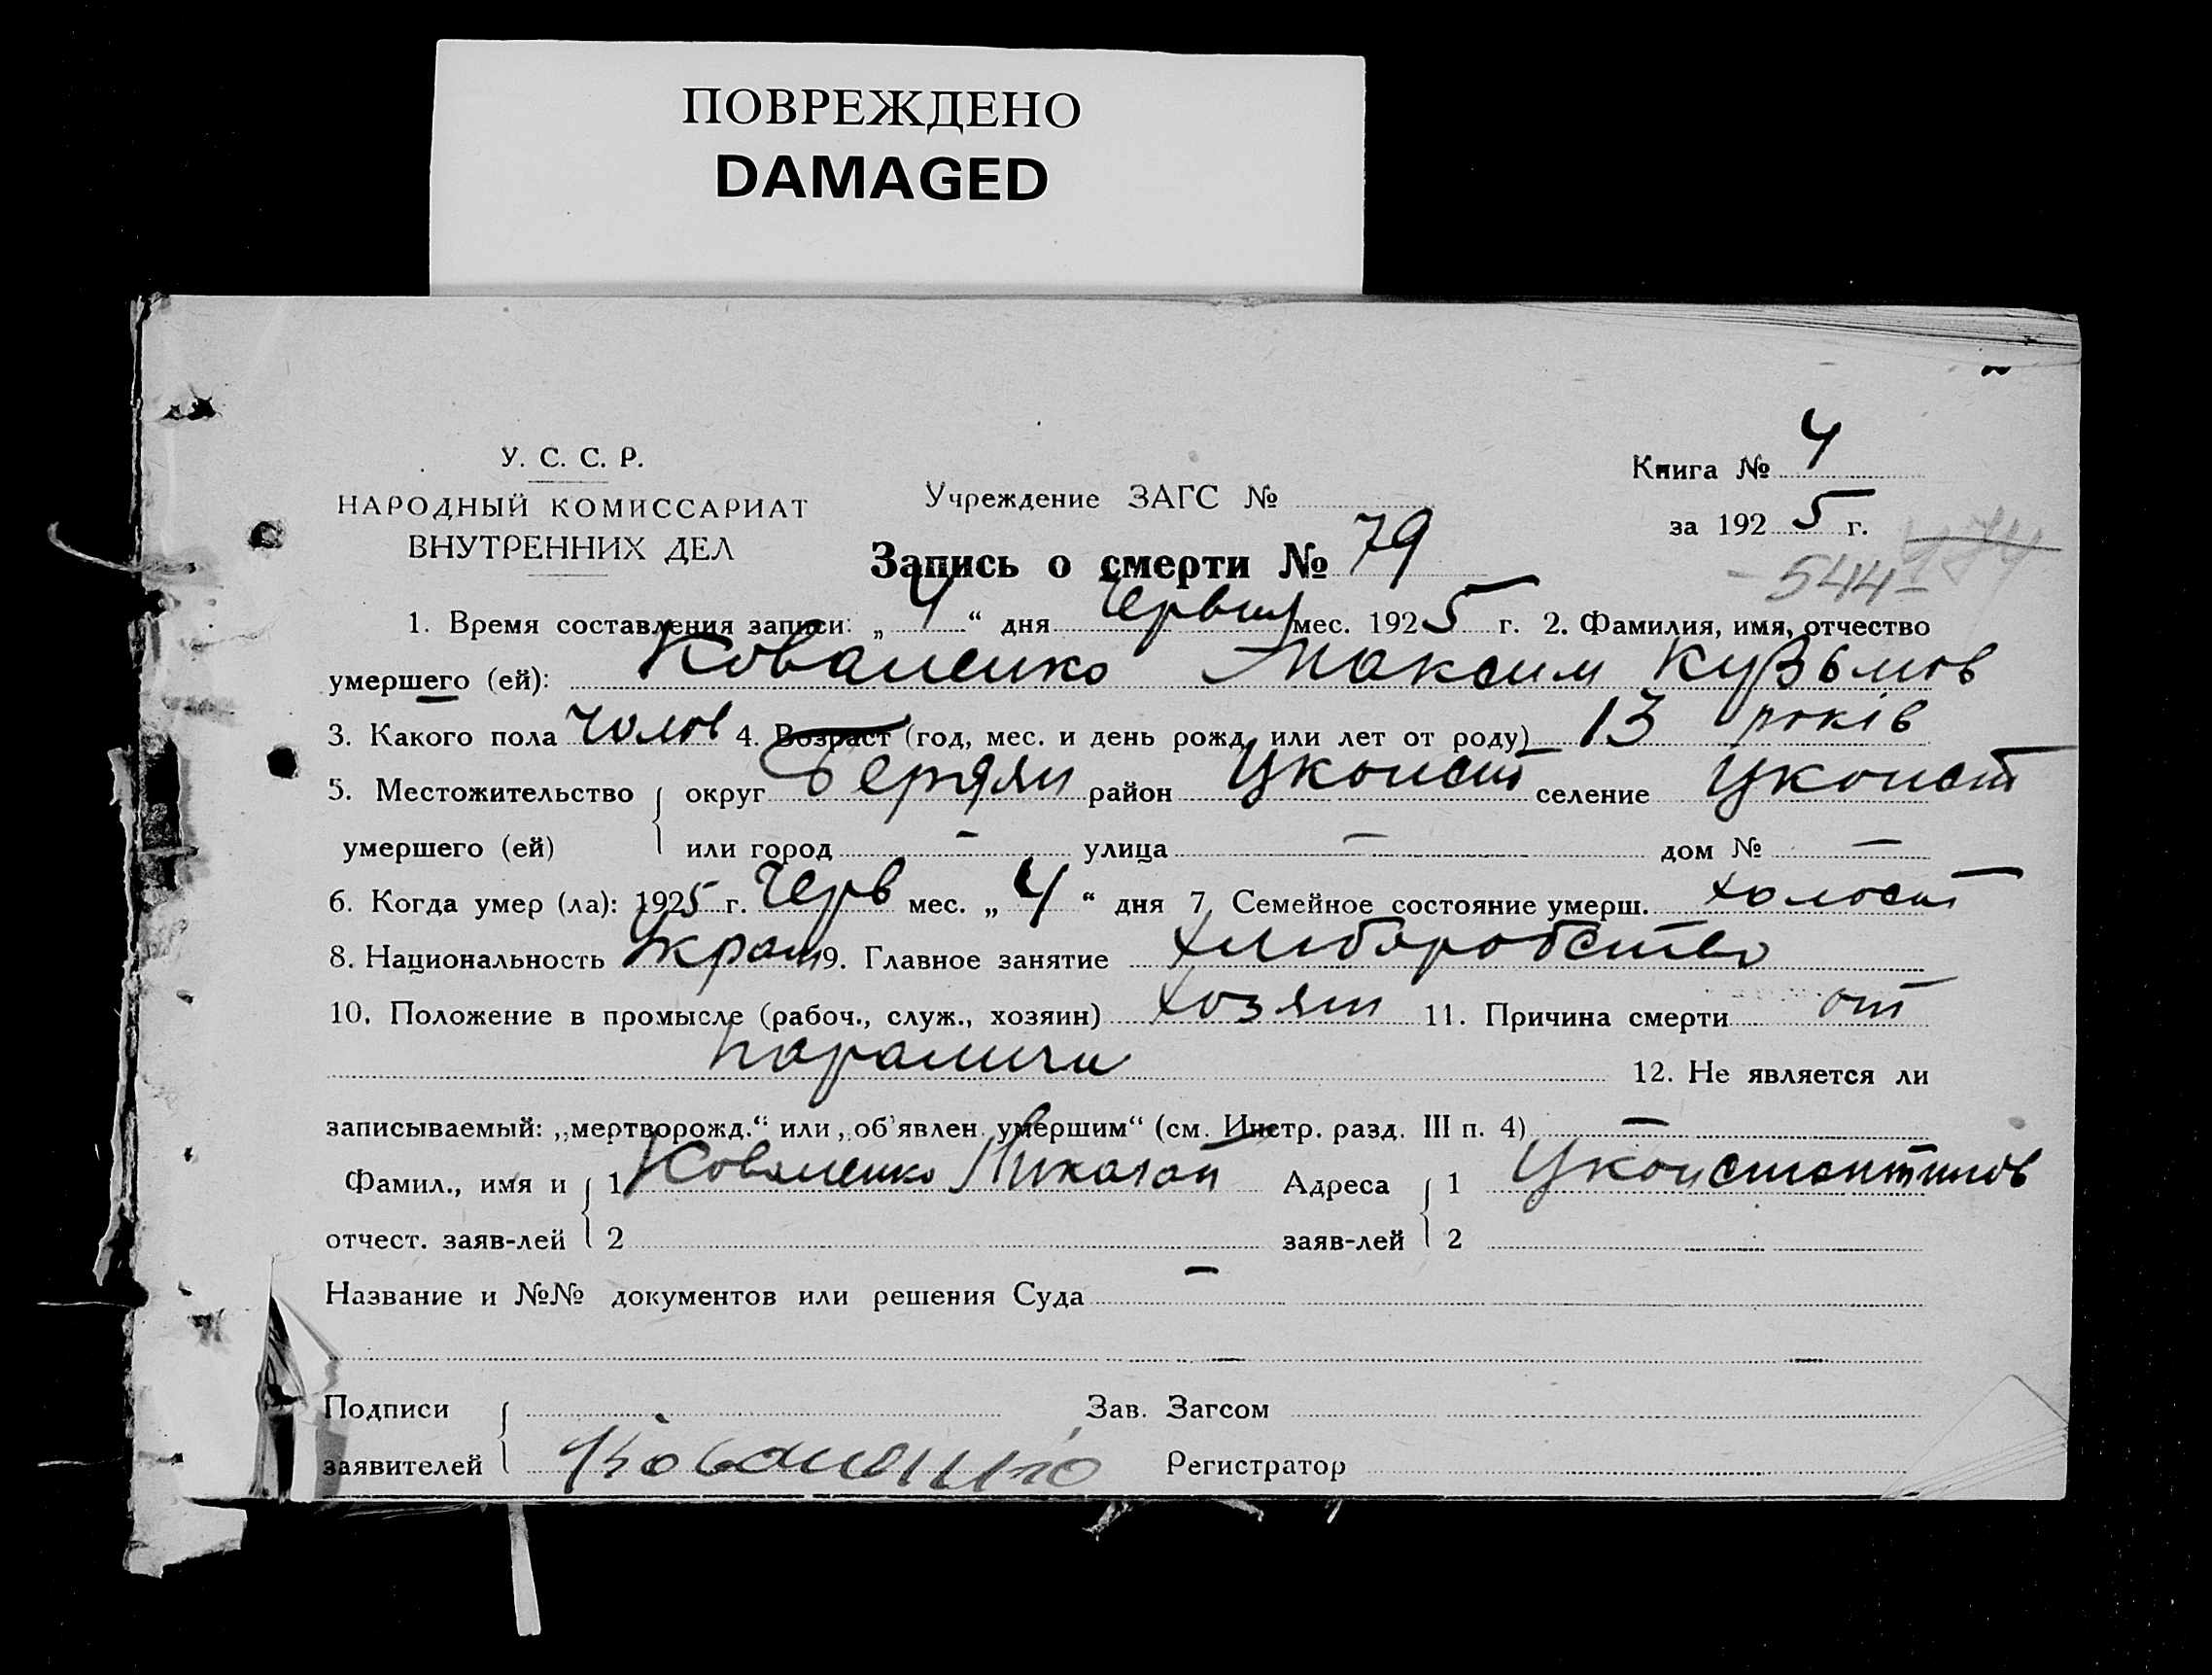 ПОВРЕЖДЕНО
DAMAGED
У. С. С. Р.
НАРОДНЫЙ КОМИССАРИАТ
ВНУТРЕННИХ ДЕЛ
Учреждение ЗАГС №
Книга № 4
за 1925 г.
544
Запись о смерти № 79
1. Время составления записи: „4“ дня Червня мес. 1925 г. 2. Фамилия, имя, отчество
умершего (ей): Коваленко Максим Кузьмов
3. Какого пола чолов 4. Возраст (год, мес. и день рожд. или лет от роду) 13 років
5. Местожительство округ Бердян район Цконст селение Цконст
умершего (ей) или город – улица – дом № –
6. Когда умер (ла): 1925 г. Черв мес. „4“ дня 7. Семейное состояние умерш. холост
8. Национальность Украин 9. Главное занятие хлибаробство
10. Положение в промысле (рабоч., служ., хозяин) хозяин 11. Причина смерти от
паралича 12. Не является ли
записываемый: „мертворожд.“ или „об'явлен. умершим“ (см. Инстр. разд. III п. 4) –
Фамил., имя и 1 Коваленко Николай Адреса 1 Цконстантинов
отчест. заяв-лей 2 заяв-лей 2
Название и №№ документов или решения Суда –
Подписи Зав. Загсом
заявителей Коваленко Регистратор